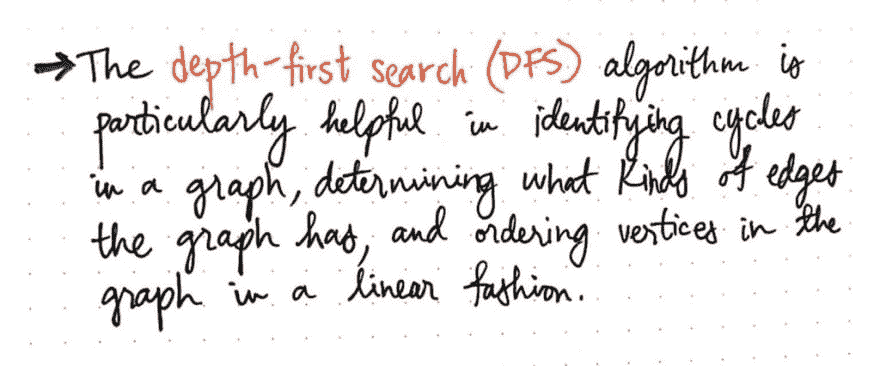 →The depth-first search (DFS) algorithm is
particularly helpful in identifying cycles
in a graph, determining what kinds of edges
the graph has, and ordering vertices in the
graph in a linear fashion.